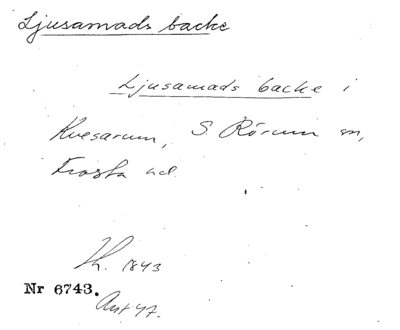 Ljusamads backe
Ljusamads backe i
Kvesarum, S. Rörum sn,
Frosta hd.
Lh. 1843
Nr 6743.
Ant 47.